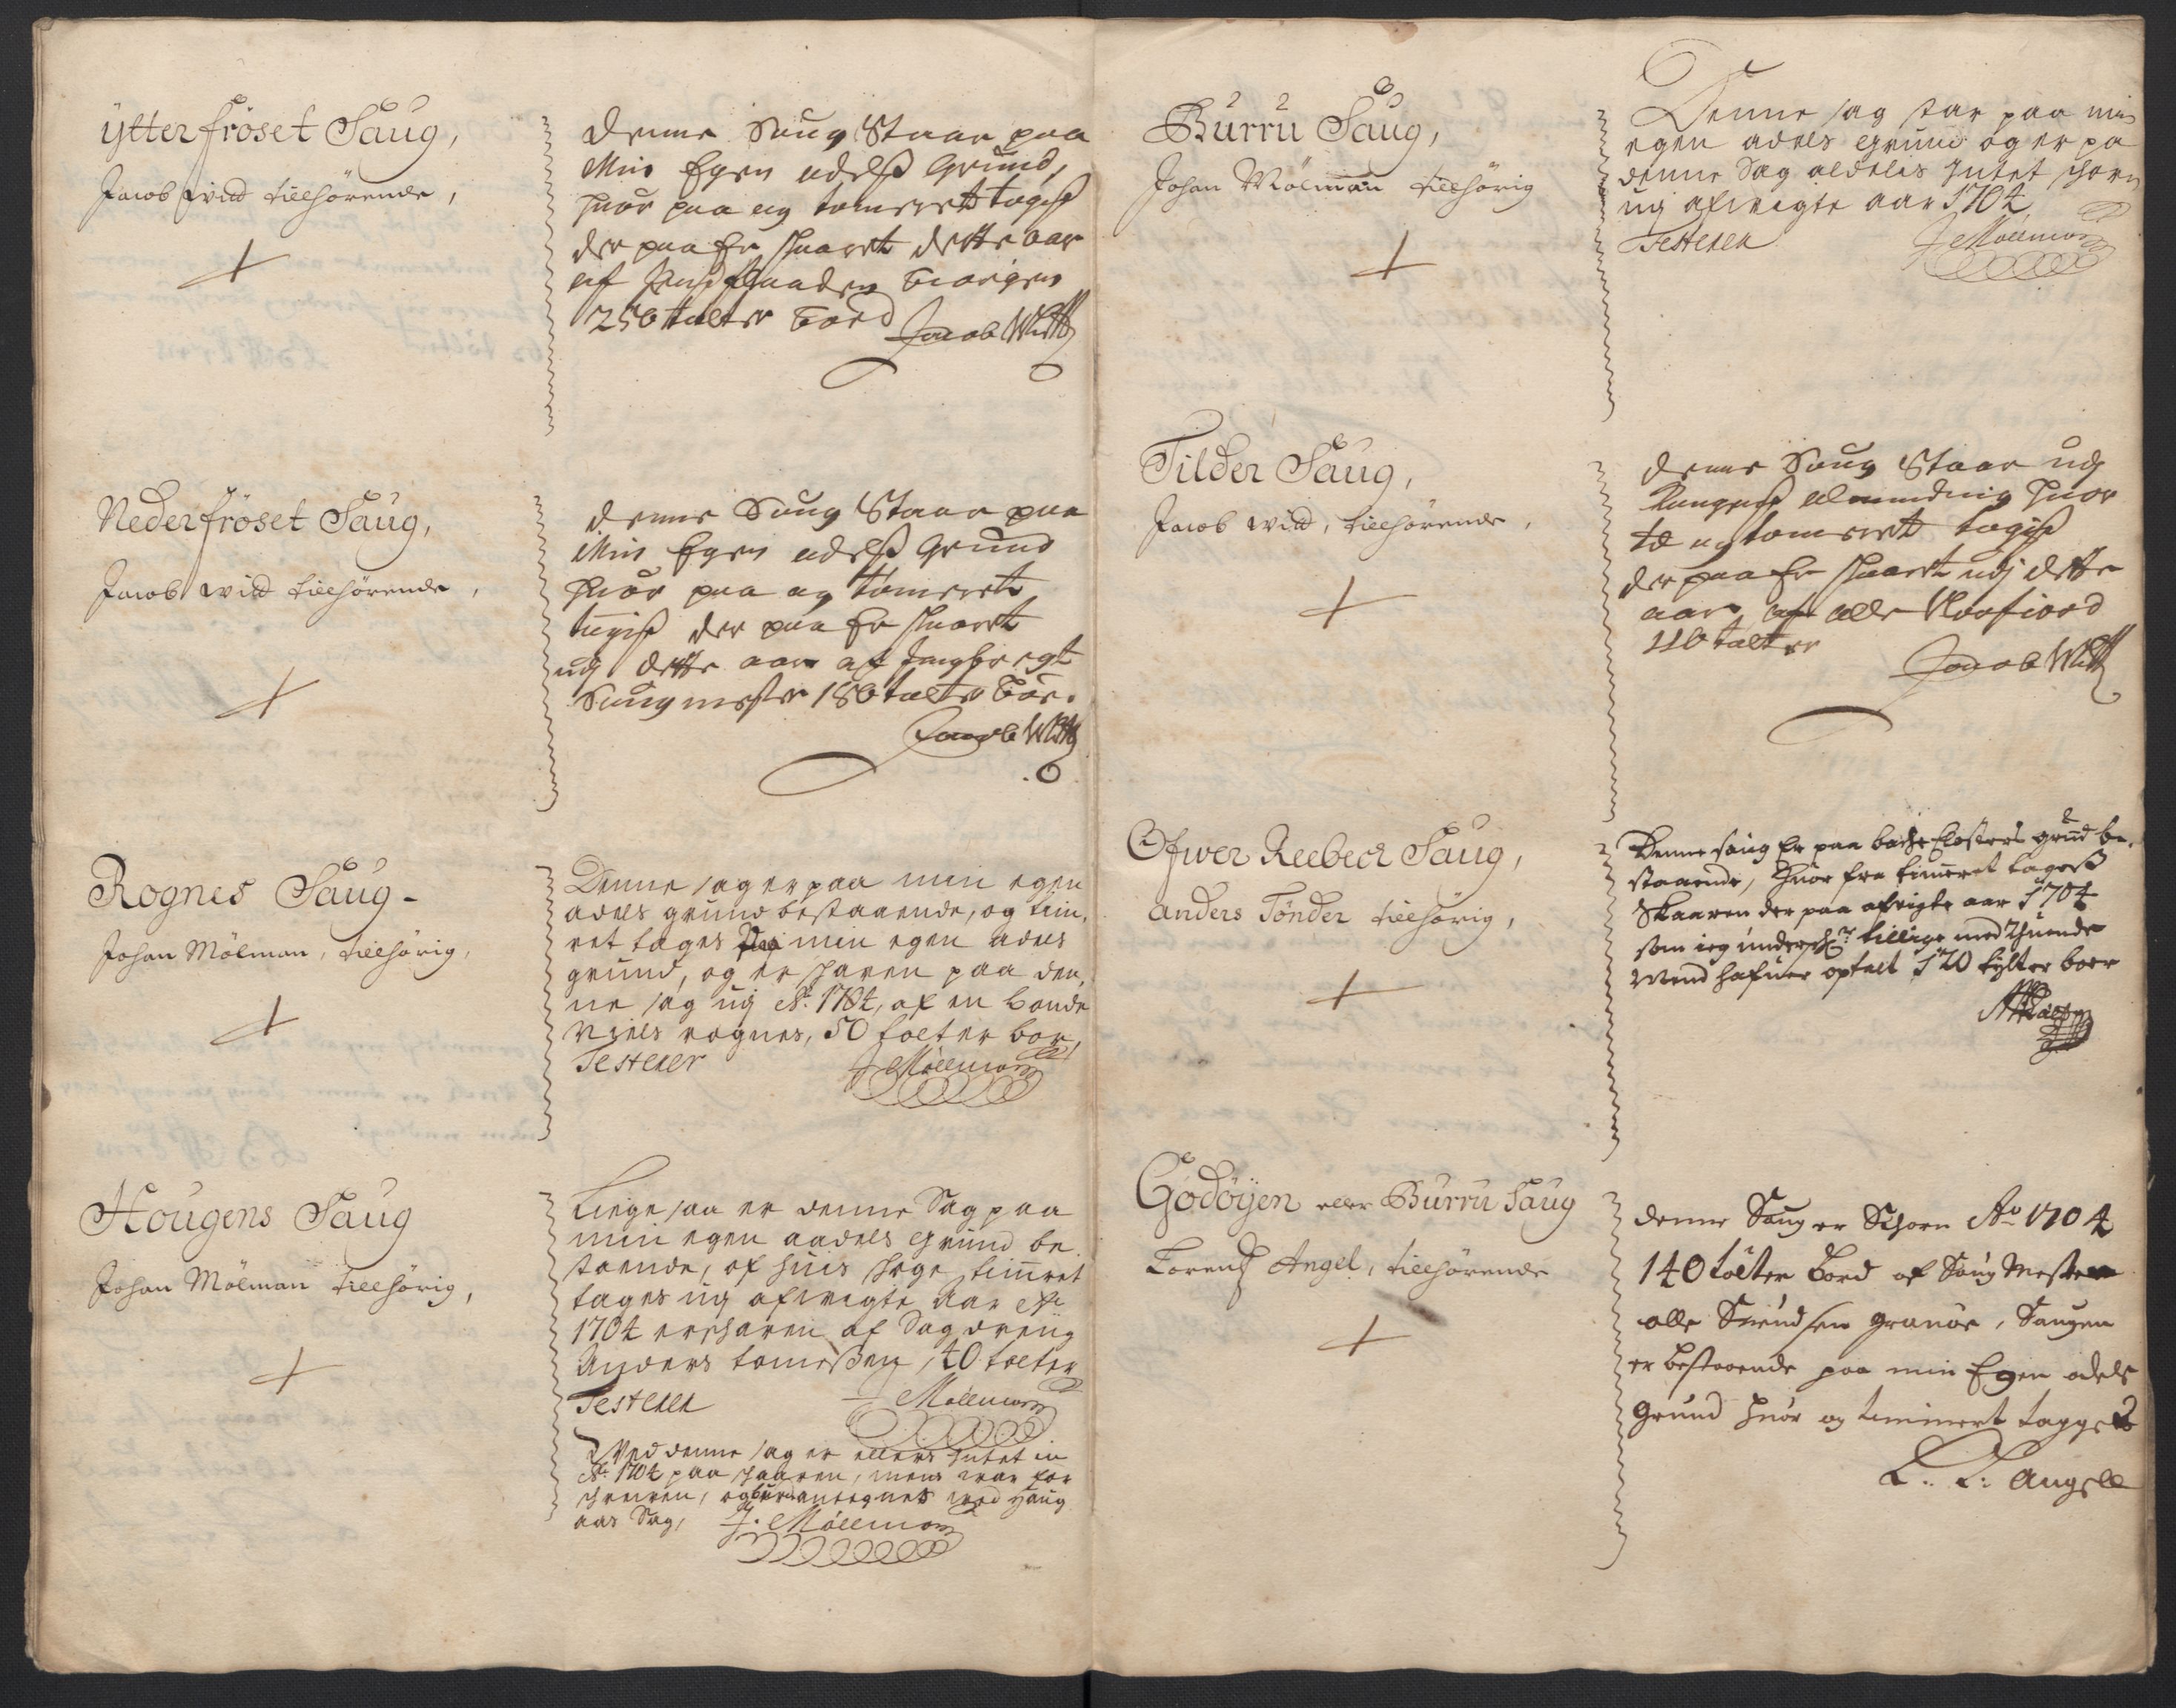 Ytterfröset Saug,
Jacob Witt tilhörende,
+
denne Saug Staar paa
Min Egen odelß Grund,
huor paa og tomeret tagiß
der paa Er skaaret dette aar
af
250 tolter bord Jacob Witt
Nederfröset Saug,
Jacob Witt tilhörende,
+
denne Saug Staar paa
Min Egen odelß Grund
huor paa og tömeret
tagiß der paa Er skaaret
udj dette aar af Ingbregt
Saugmester 180 tolter bor.
Jacob Witt
Rognes Saug -
Johan Mölman, tilhörig,
+
Denne sag er paa min egen
adels grund bestaaende, og tim,
ret tages paa min egen adels
grund, og er skaren paa den,
ne sag udj Ao. 1704, af en bonde
Niels rognes, 50 tolter bor,
Testerer J Möllmann
Hougens Saug
Johan Mölman tilhörig,
+
Ligesaa er denne Sag paa
min egen aadels grund be
staaende, af huis skoge timret
tages udj afvigte Aar Ao
1704 er skaren af Sag dreng
Anders tomeßen, 40 tolter
Testerer J Möllmann
Ved denne sag er ellers Intet in
Ao. 1704 paa skaaren, mens war for
skreven, og burde antegnes ved Haug
aas Sag, J. Möllmann
Burru Saug,
Johan Mölman tilhörig
+
Denne sag star paa min
egen adels grund og er pa
denne Sag aldelis Intet skoren
udj afvigte aar 1704
Testerer J Möllmann
Tilder Saug,
Jacob Witt, tilhörende,
+
denne Saug Staar udj
almindnig huor
og tomeret tagiß
der paa Er skaaret udj dette
aar af olle Kloofiord
110 tolter
Jacob Witt
Ofwer Reebech Saug,
Anders Tönder tilhörig,
+
Denne saug Er paa bache Closters grund be,
staaende, huor fra timeret tageß
Skaaren der paa afvigte aar 1704
som ieg undersch: tillige med thuende
Mend hafuer optalt 120 tylter boer
Godöyen eller Burru Saug
Lorentz Angel, tilhörende
+
denne Saug er Schorn Ao 1704
140 tolter bord af Saug Mester
olle Suendsen granöe, Saugen
er bestaaende paa min Egen odels
Grund huor og timmert tagges
L: L: Angell